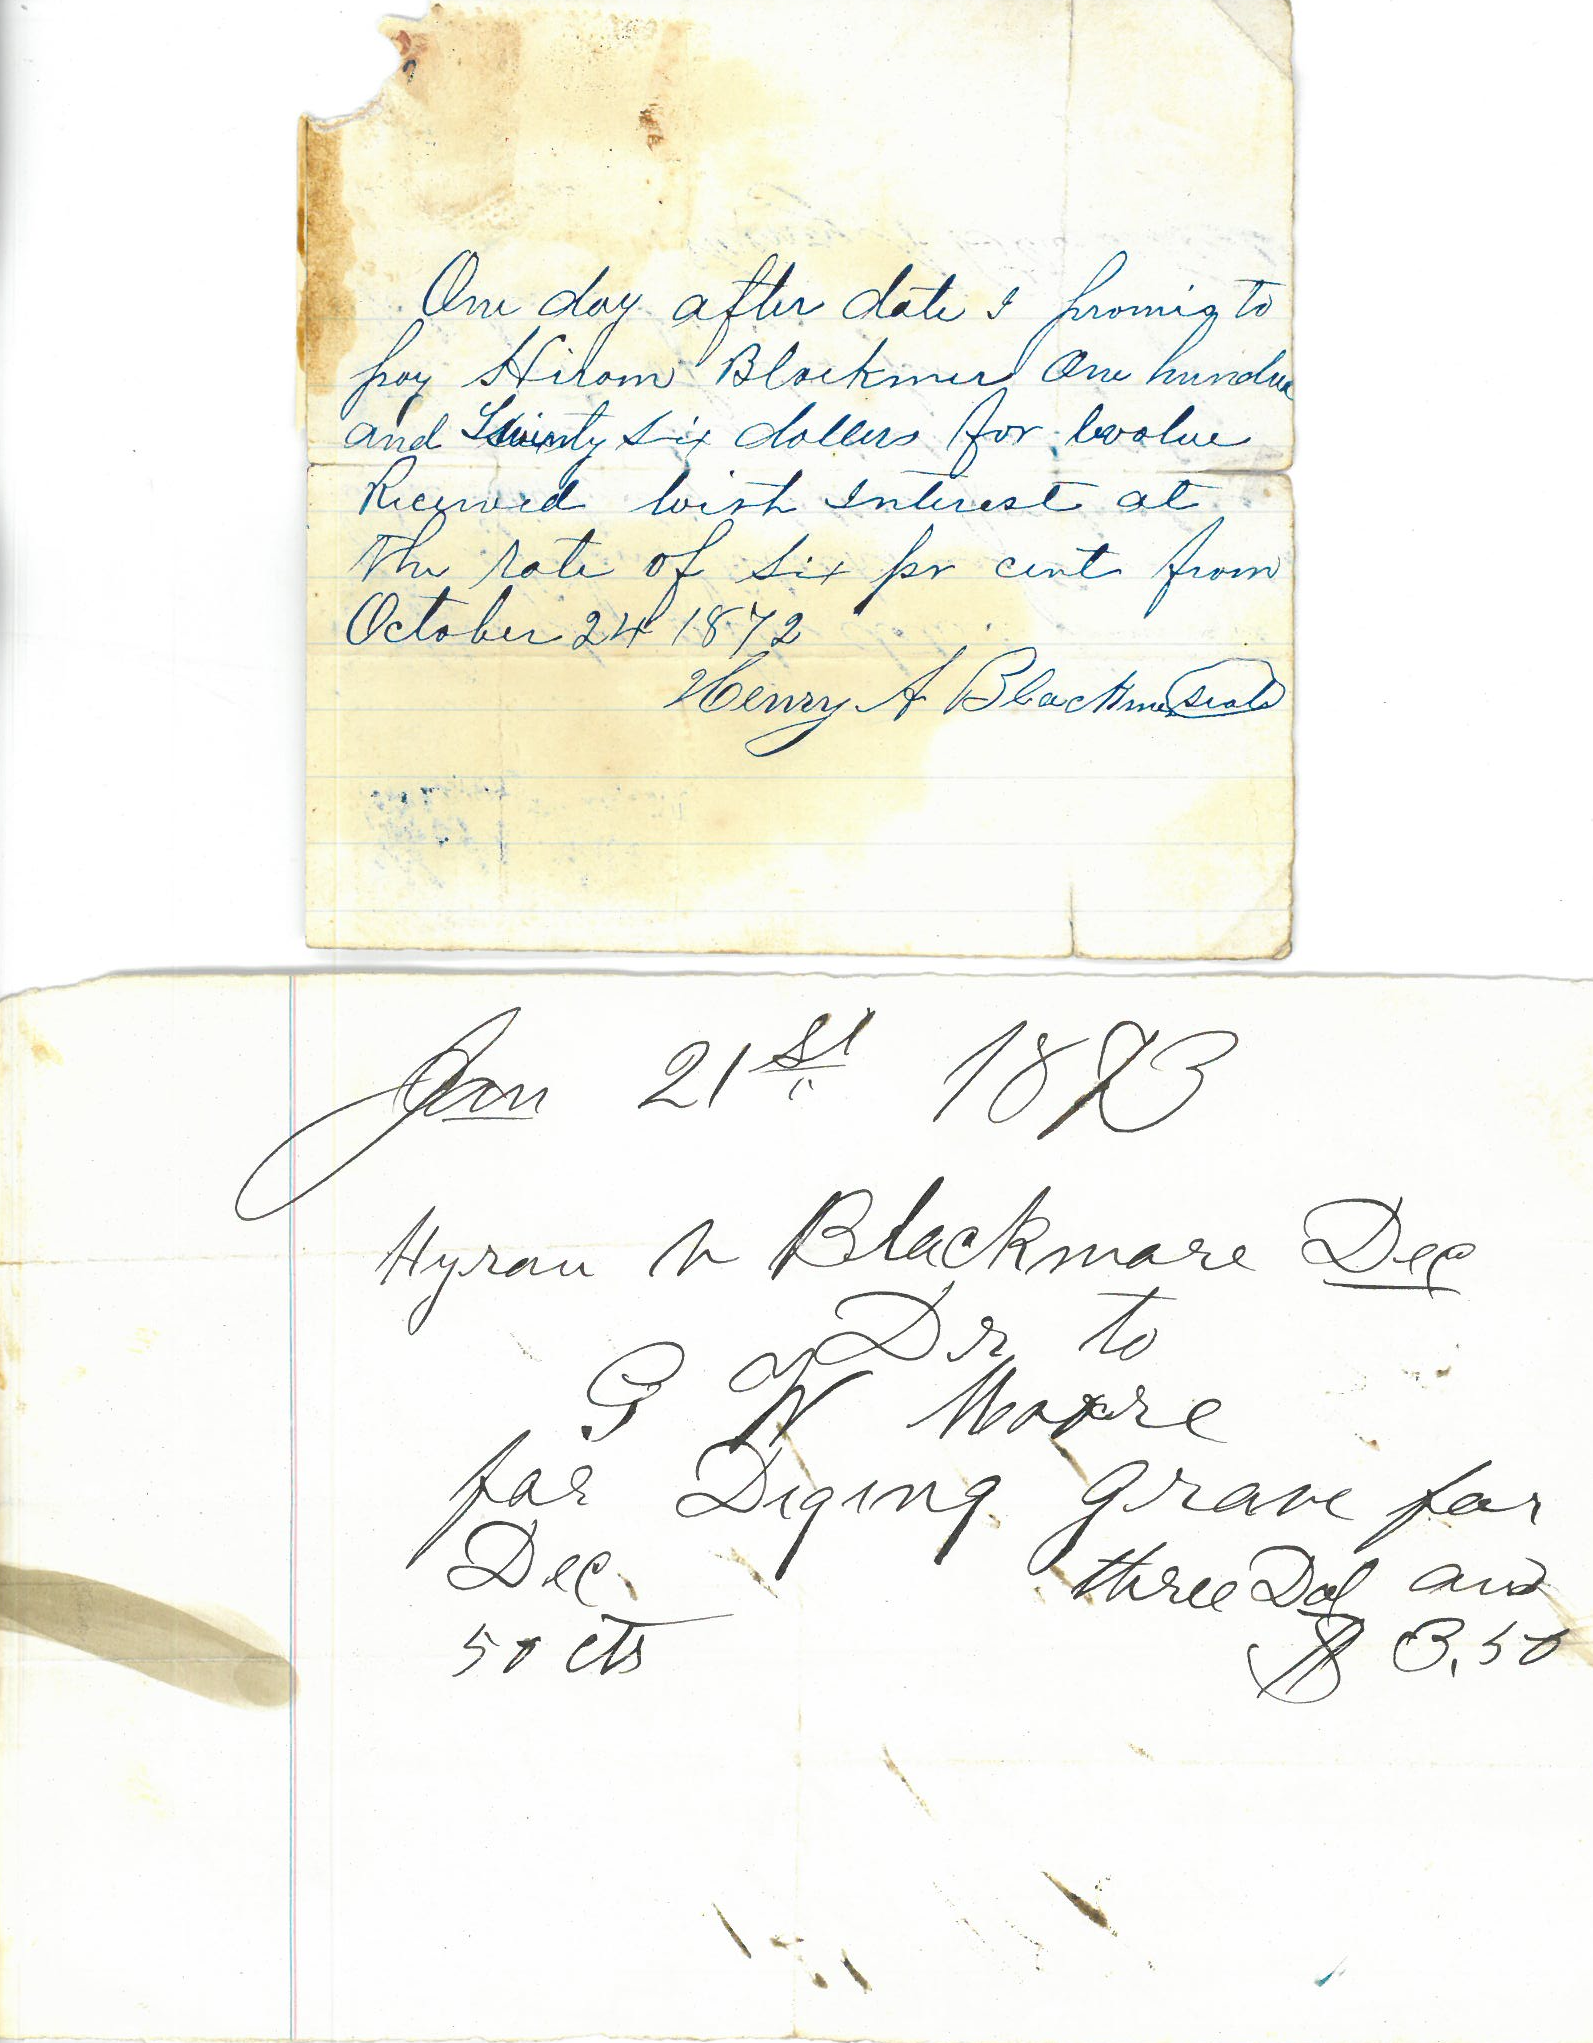 One day after date I promis to
pay Hiram Blackmer One hundre
and Twenty six dollers for value
Received with interest at
the rate of six pr cent from
October 24 1872
Henry A Blackmer Seal
Jan 21st 1873
Hyram Blackmare Dec
Dr to
G W Moore
for Diging Grave for
Dec three Dol and
50 cts $ 3.50